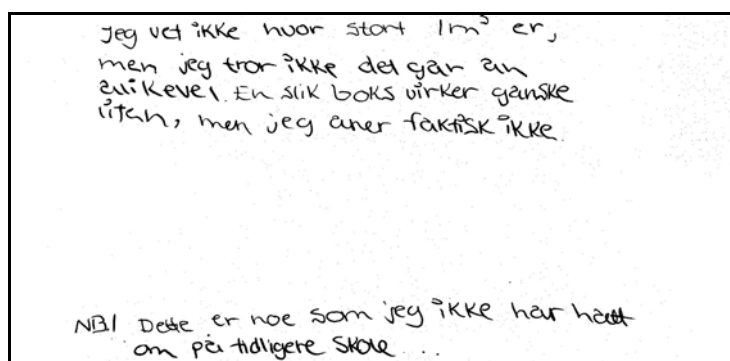 Jeg vet ikke hvor stort 1m³ er,
men jeg tror ikke det går an
allikevel. En slik boks virker ganske
liten, men jeg aner faktisk ikke.
NB! Dette er noe som jeg ikke har hatt
om på tidligere skole...